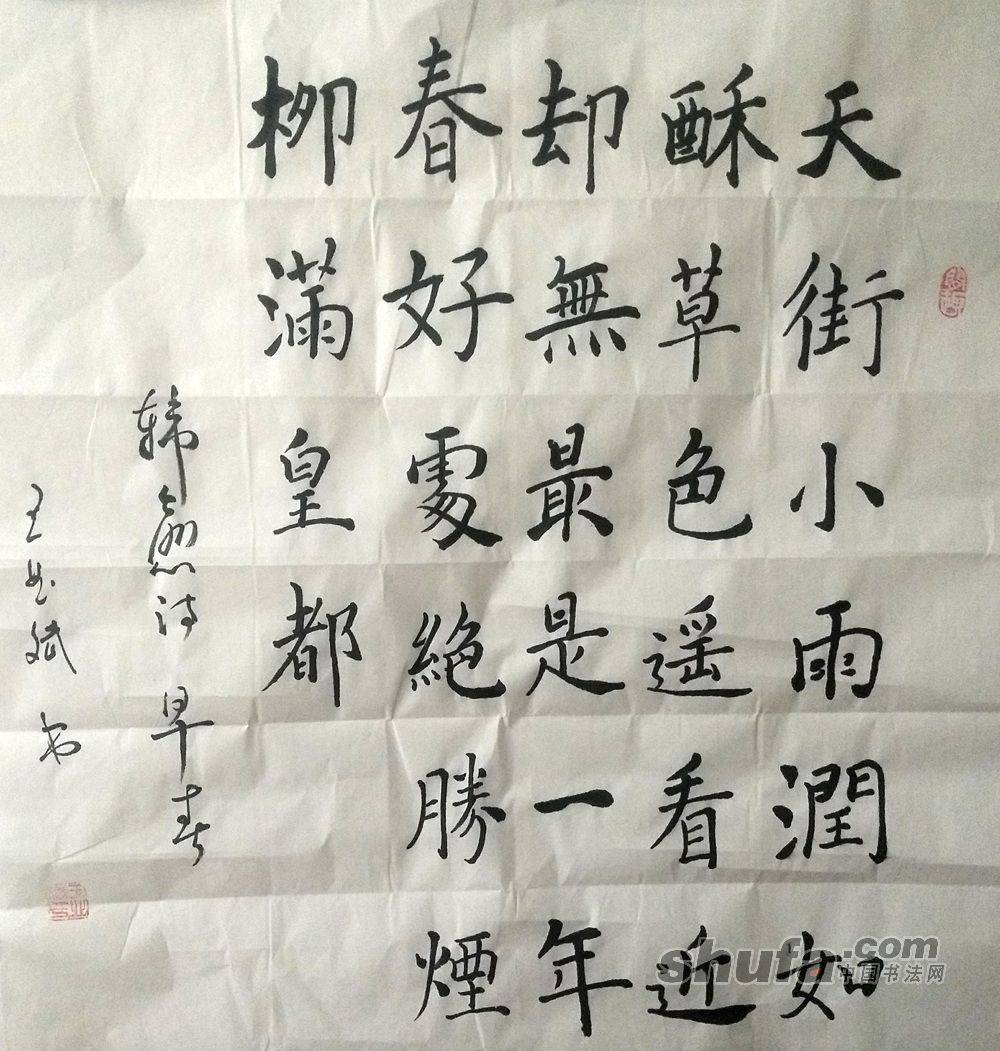 天街小雨潤如
酥草色遥看近
却無最是一年
春好處絕勝煙
柳滿皇都
韩愈诗 早春
shufa.com
中国书法网